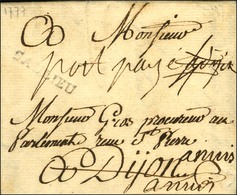 1777
A Monsieur
port payé
SAULIEU
Monsieur Gros procureur au
Parlement rue St Pierre
A Dijon